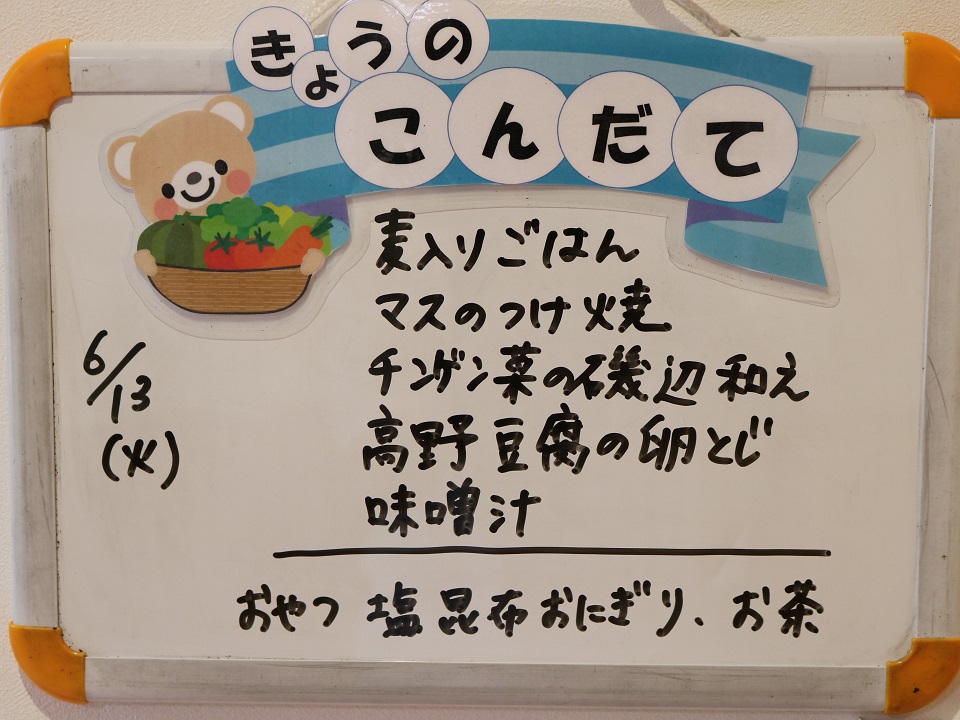 きょうの
こんだて
麦入りごはん
マスのつけ焼
チンゲン菜の磯辺和え
高野豆腐の卵とじ
味噌汁
6/13
(火)
おやつ 塩昆布おにぎり、お茶